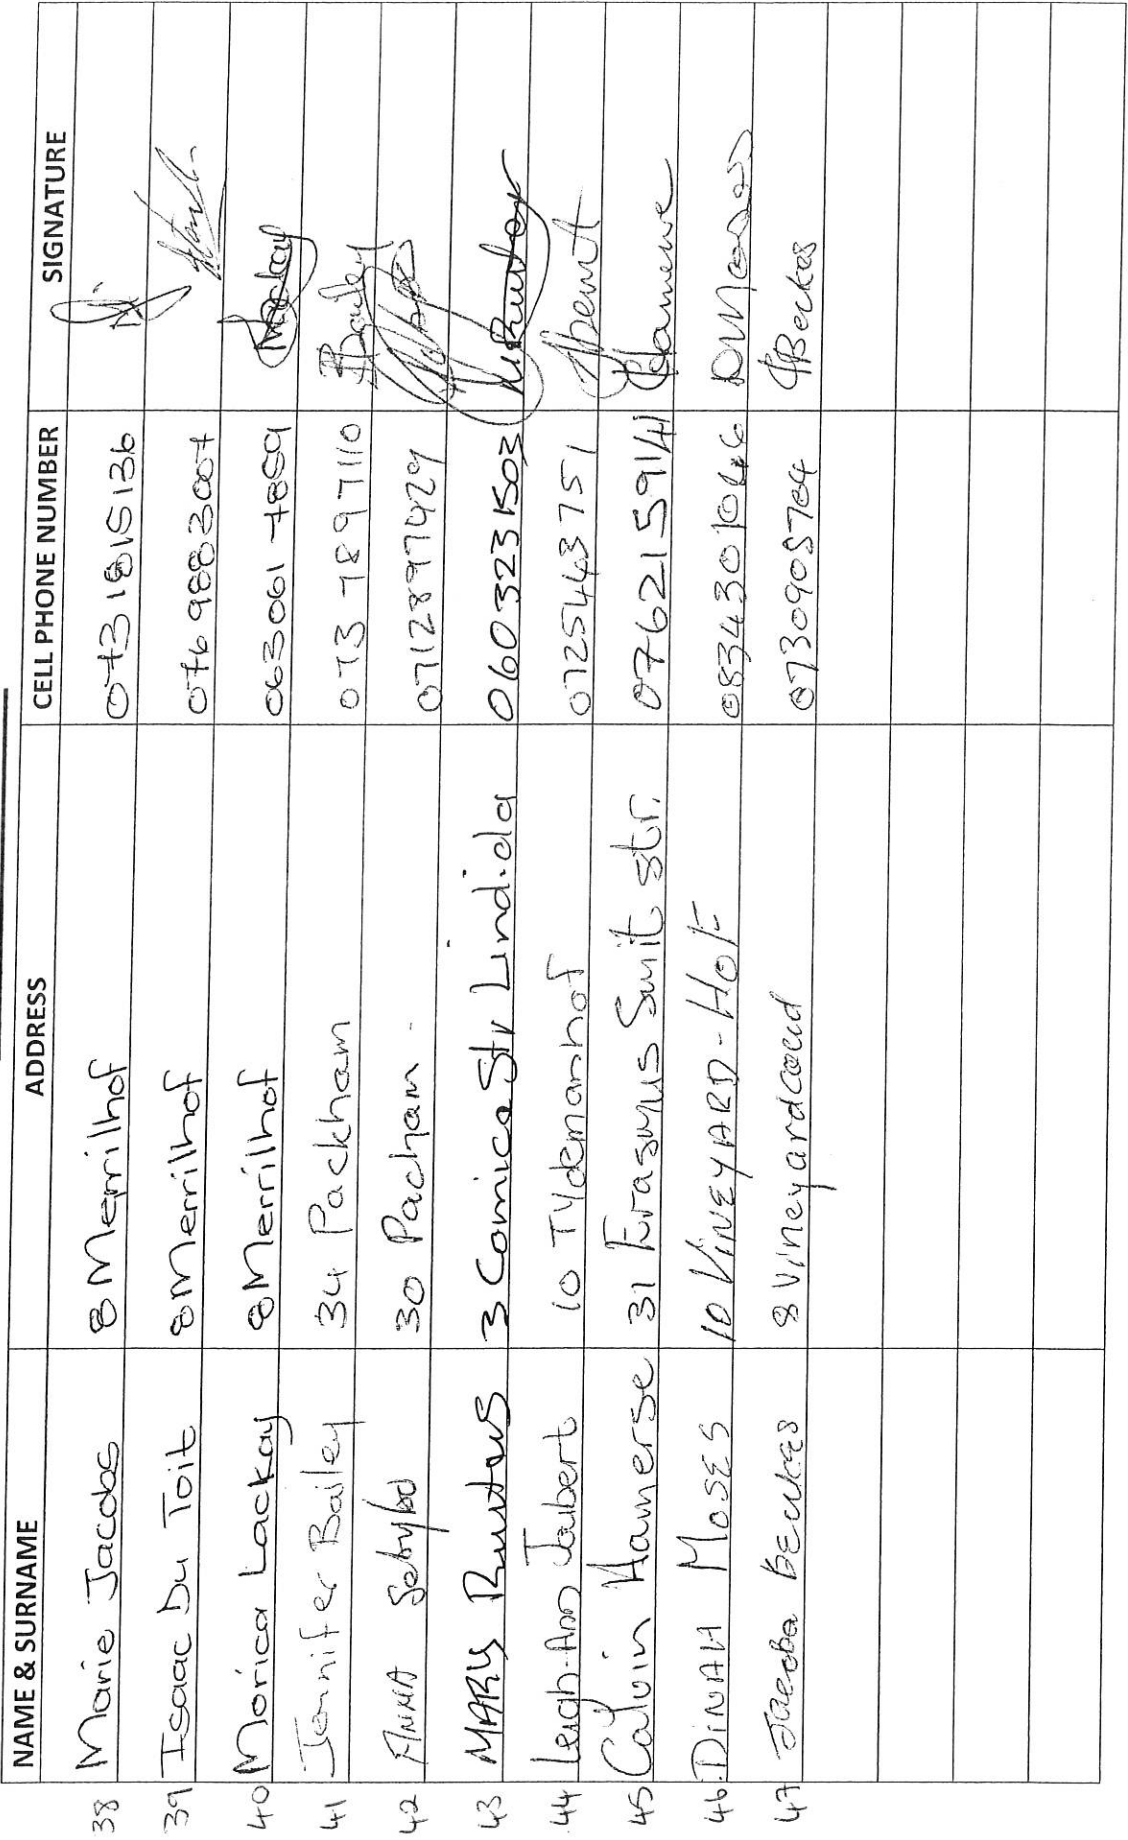 NAME & SURNAME ADDRESS CELL PHONE NUMBER SIGNATURE
38 Marie Jacobs 8 Merrilhof 0731815136
39 Isaac Du Toit 8 Merrilhof 0769883007
40 Morica Lackay 8 Merrilhof 063061 7889 MLackay
41 Jennifer Bailey 34 Packham 073 7897110 JBailey
42 ANNA 30 Pacham. 0712897429
43 MARY Ruiters 3 Comica Str Lindida 0603231503
44 Leigh-Ann Joubert 10 Tydemanhof 0725443751
45 Calvin Hamerse 31 Erasmus Smit str. 0762159141
46. DINAH MOSES 10 VINEYARD-HOF 0834301046 DMoses
47 Jacoba BEUKES 8 Vineyardcourd 0730905704 JBeukes